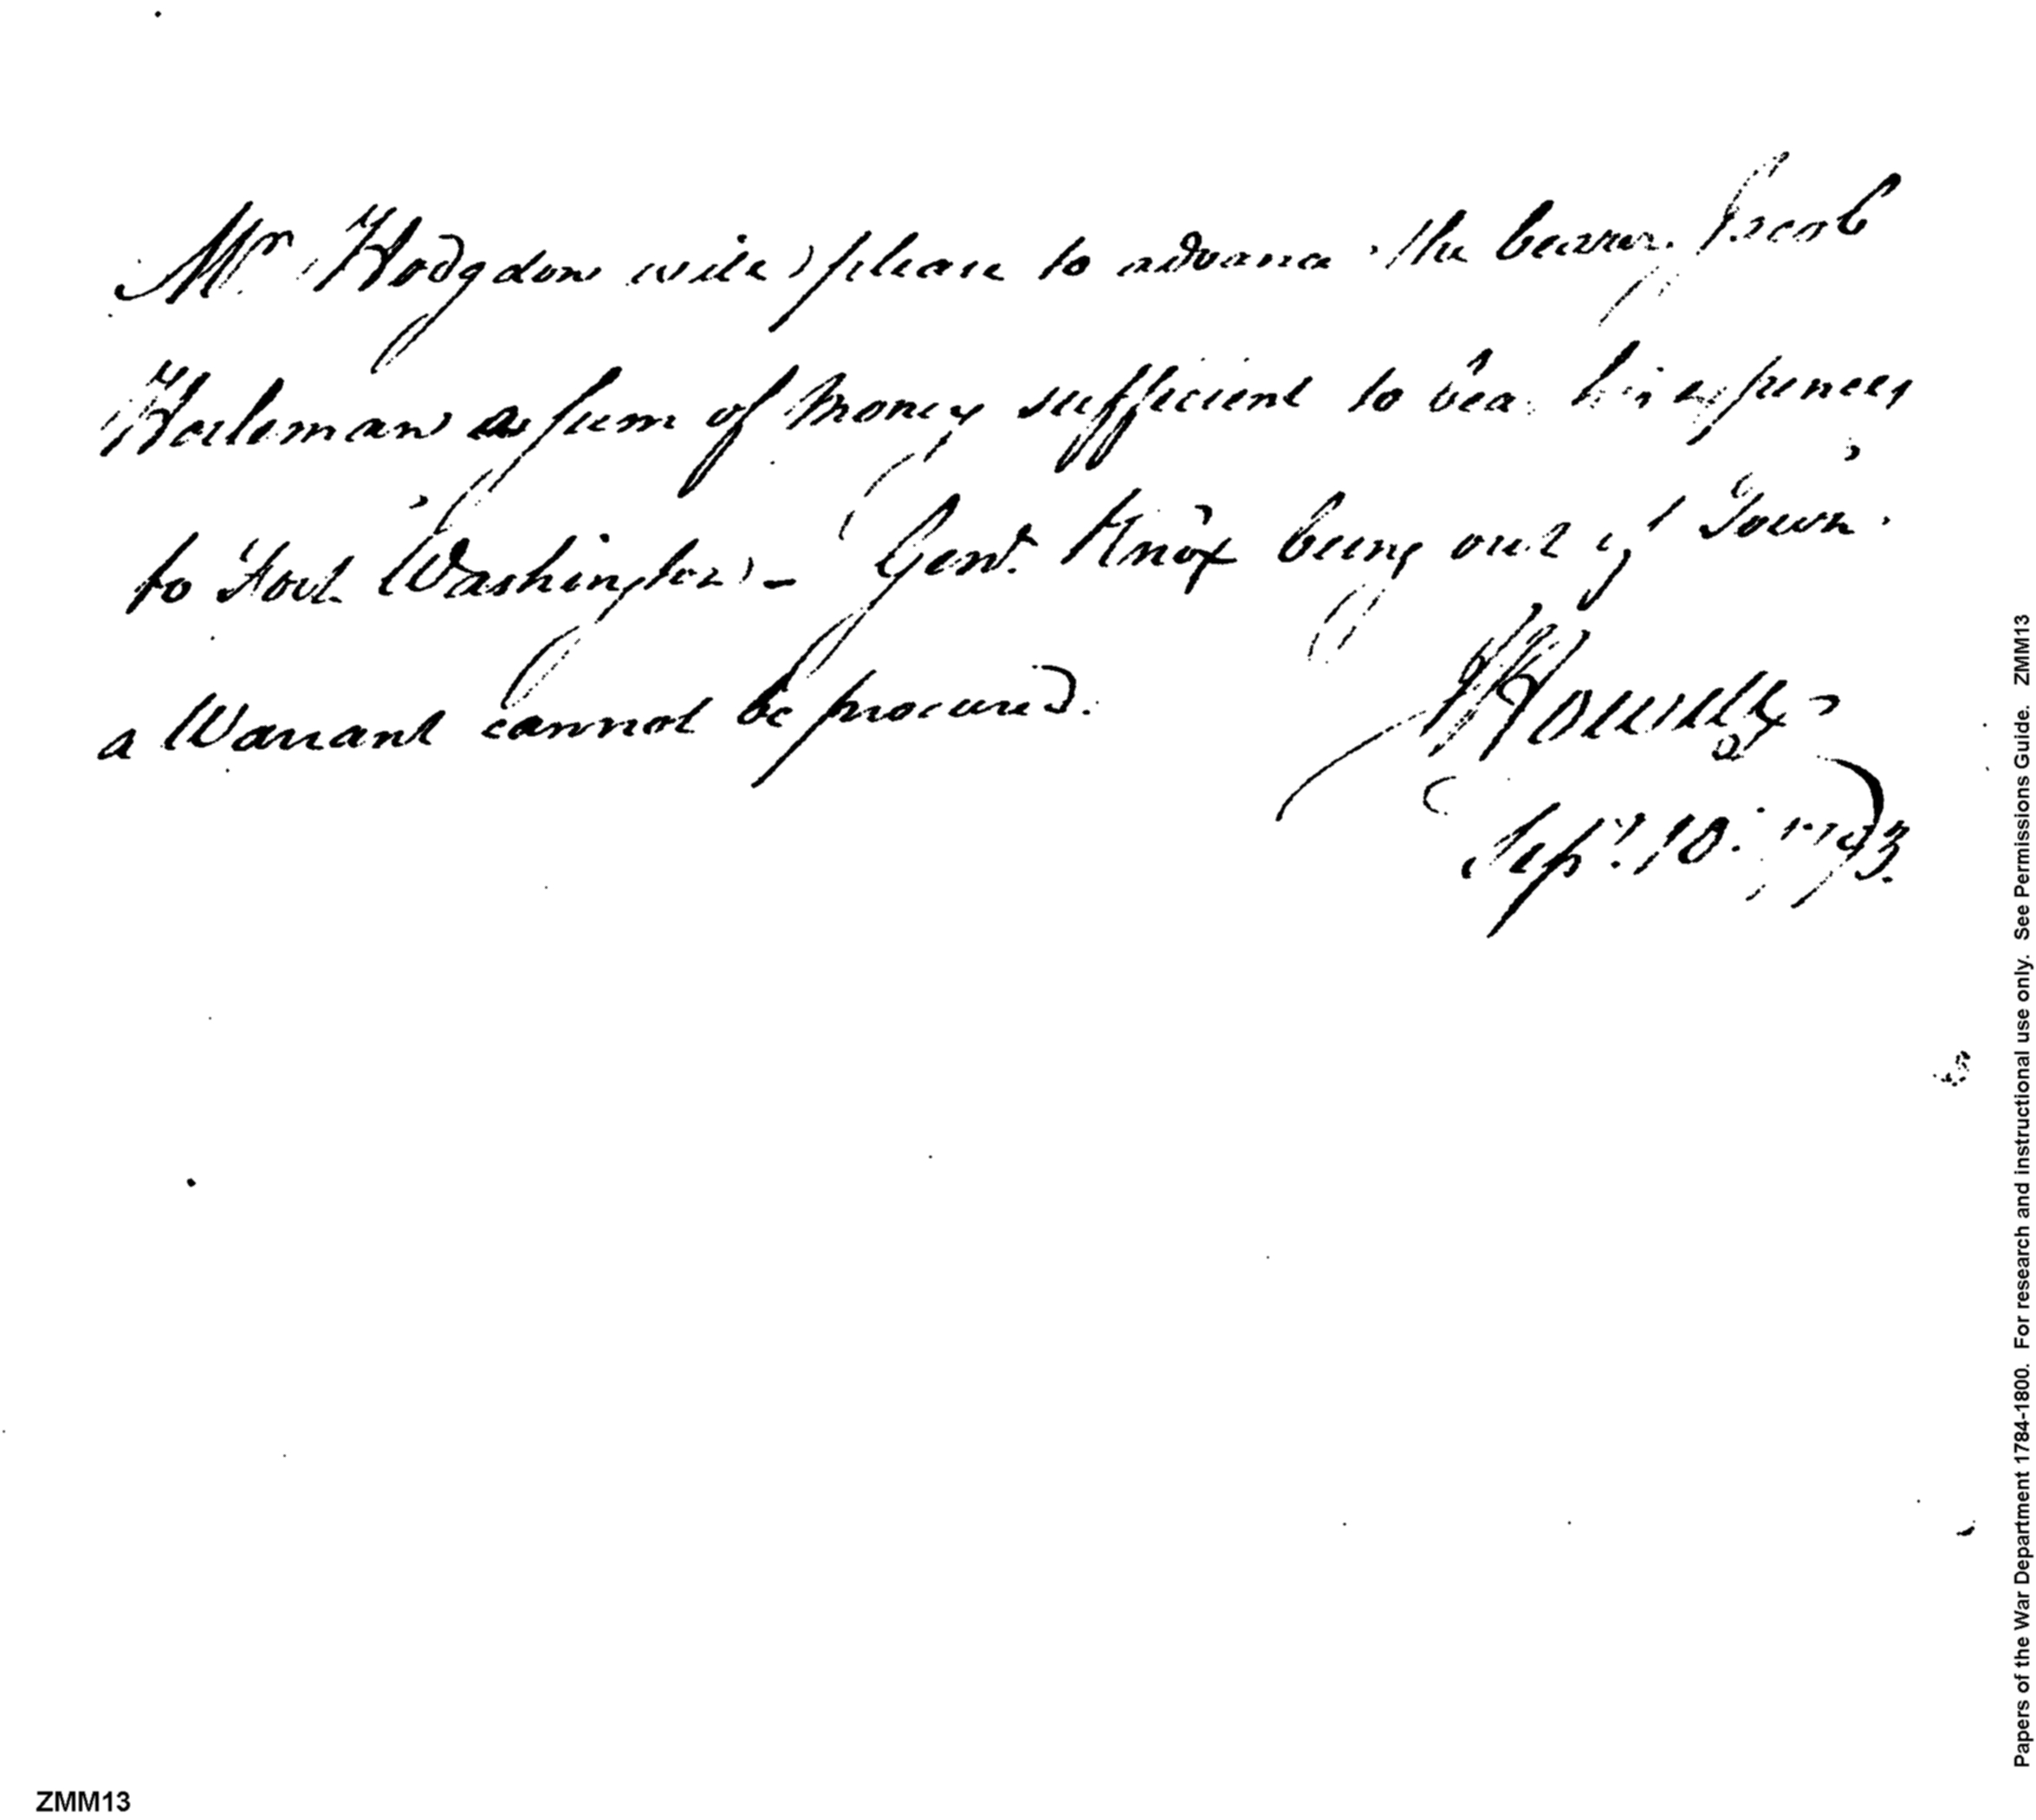 Mr Hodgdon will please to advance the bearer Jacob
a sum of money sufficient to bear his expences
to Fort Washington - Genl. Knox being out of Town.
a Warrant cannot be procured.
J Howell Jr
Sept. 10. 1793.
Papers of the War Department 1784-1800. For research and instructional use only. See Permissions Guide. ZMM13
ZMM13